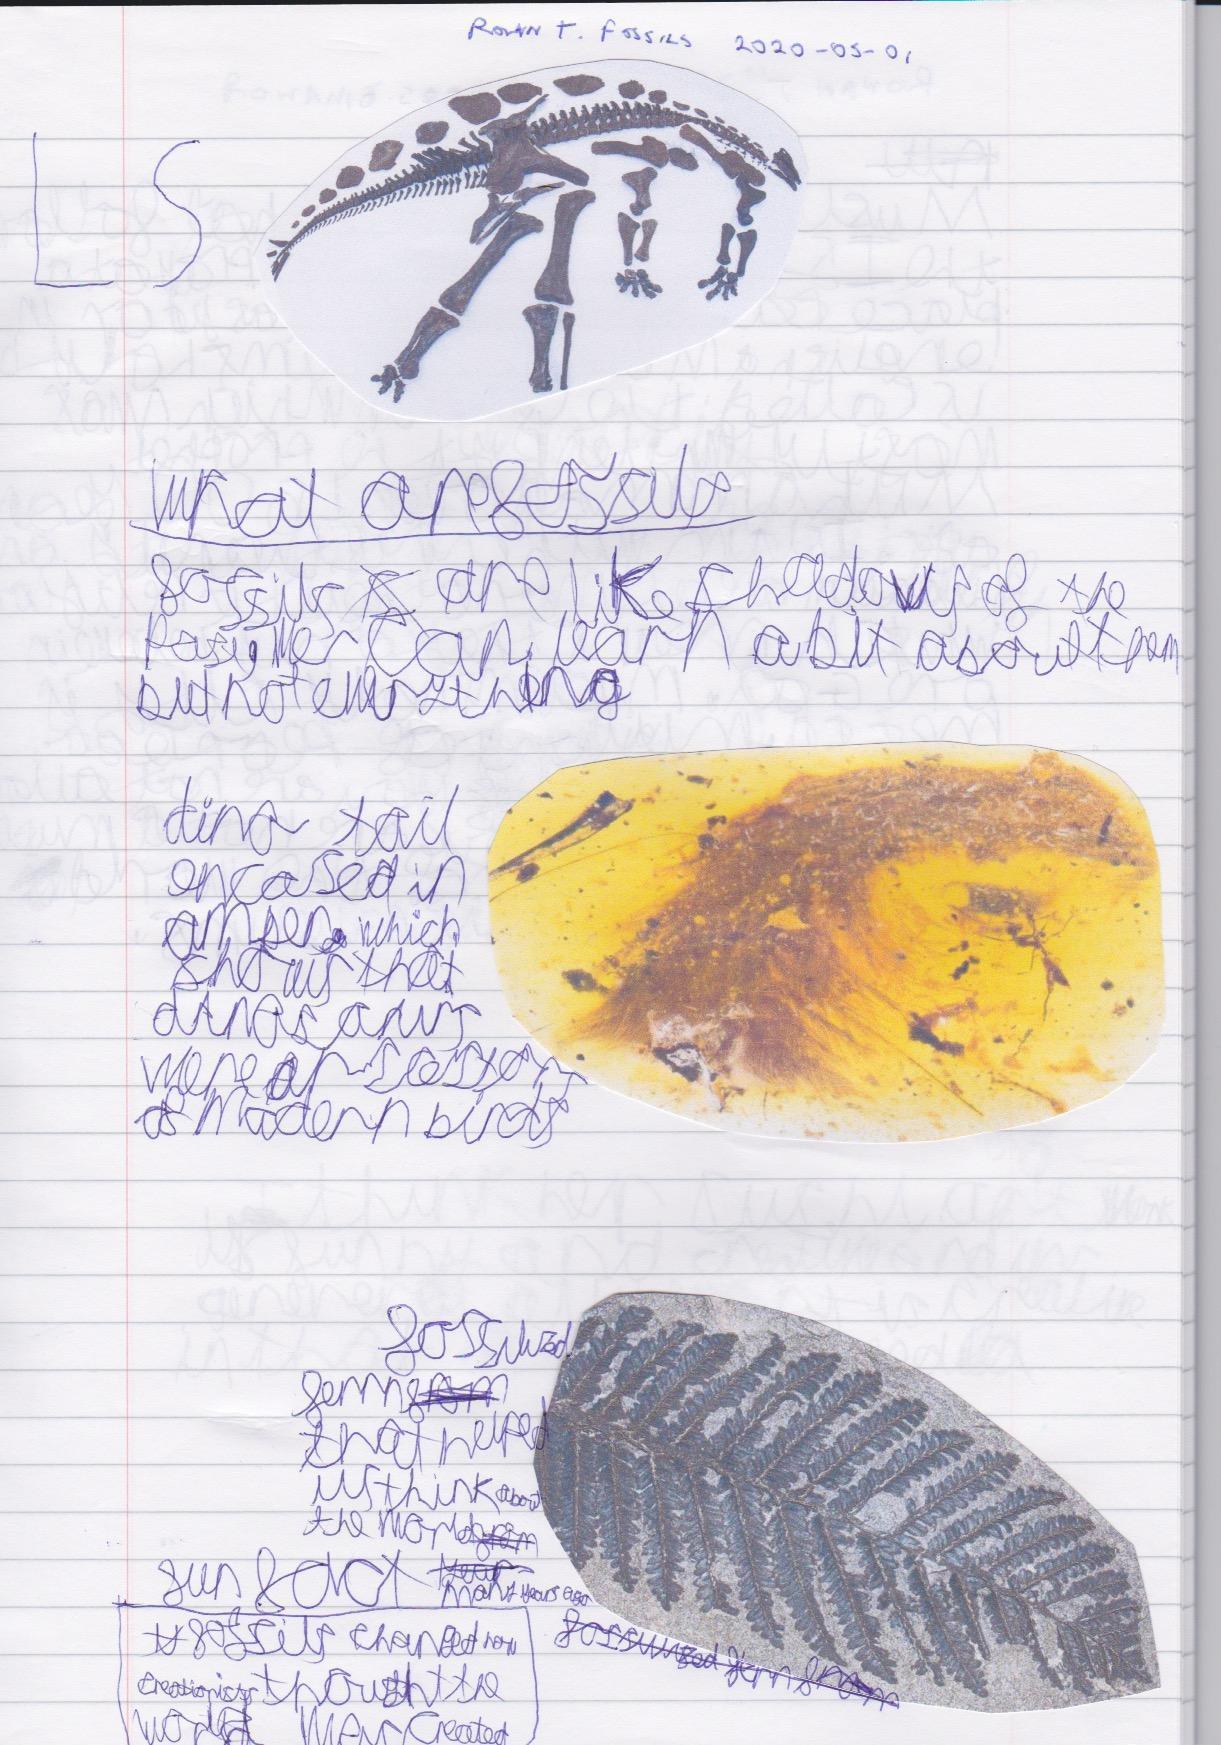 ROWAN T. FOSSILS 2020-05-01
LS
What are fossils
fossils are like shadows of the
Past, We Can learn a bit about them
but not everything
dino tail
encased in
amber. which
shows that
dinosaurs
were
of modern birds
fossilized
fern
that helped
us think about
the world
many years ago
fun fact
fossils changed how
creationists thought the
world was created
fossilized fern from